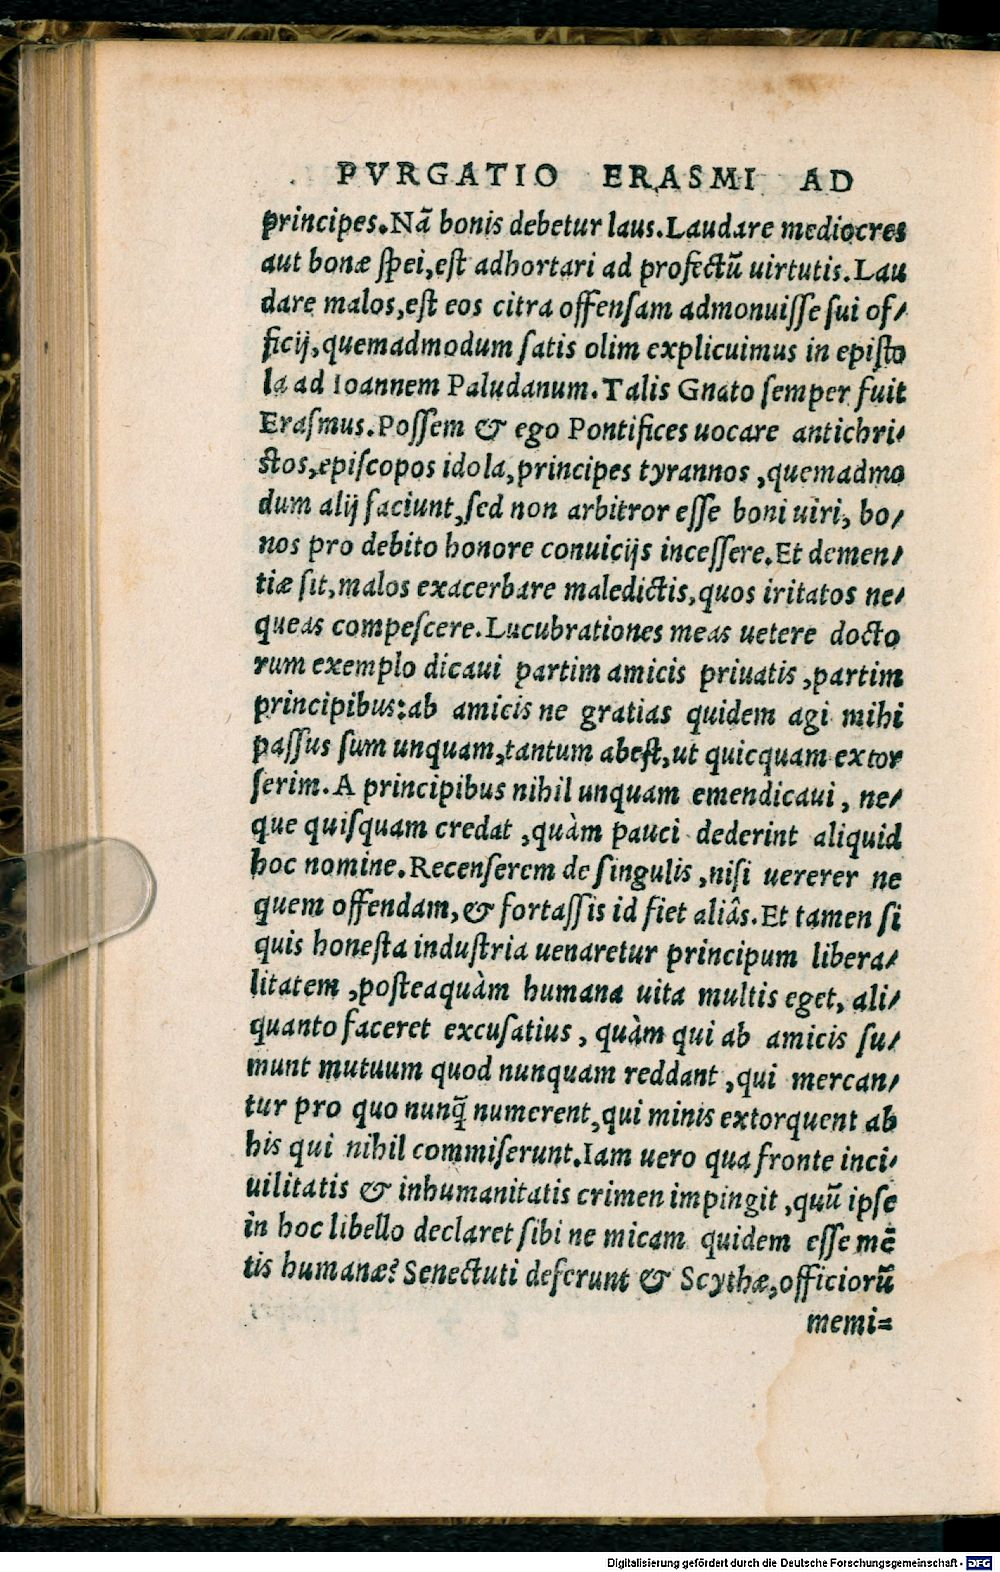 PVRGATIO ERASMI AD
principes. Nã bonis debetur laus. Laudare mediocres
aut bonæ spei, est adhortari ad profectũ uirtutis. Lau
dare malos, est eos citra offensam admonuisse sui of-
ficij, quemadmodum satis olim explicuimus in episto
la ad Ioannem Paludanum. Talis Gnato semper fuit
Erasmus. Possem & ego Pontifices uocare antichri-
stos, episcopos idola, principes tyrannos, quemadmo
dum alij faciunt, sed non arbitror esse boni uiri, bo-
nos pro debito honore conuicijs incessere. Et demen-
tiæ sit, malos exacerbare maledictis, quos iritatos ne-
queas compescere. Lucubrationes meas uetere docto
rum exemplo dicaui partim amicis priuatis, partim
principibus: ab amicis ne gratias quidem agi mihi
passus sum unquam, tantum abest, ut quicquam extor
serim. A principibus nihil unquam emendicaui, ne-
que quisquam credat, quàm pauci dederint aliquid
hoc nomine. Recenserem de singulis, nisi uererer ne
quem offendam, & fortassis id fiet aliâs. Et tamen si
quis honesta industria uenaretur principum libera-
litatem, posteaquàm humana uita multis eget, ali-
quanto faceret excusatius, quàm qui ab amicis su-
munt mutuum quod nunquam reddant, qui mercan-
tur pro quo nunq̃ numerent, qui minis extorquent ab
his qui nihil commiserunt. Iam uero qua fronte inci-
uilitatis & inhumanitatis crimen impingit, quũ ipse
in hoc libello declaret sibi ne micam quidem esse mẽ
tis humanæ? Senectuti deferunt & Scythæ, officiorũ
memi=
Digitalisierung gefördert durch die Deutsche Forschungsgemeinschaft - DFG